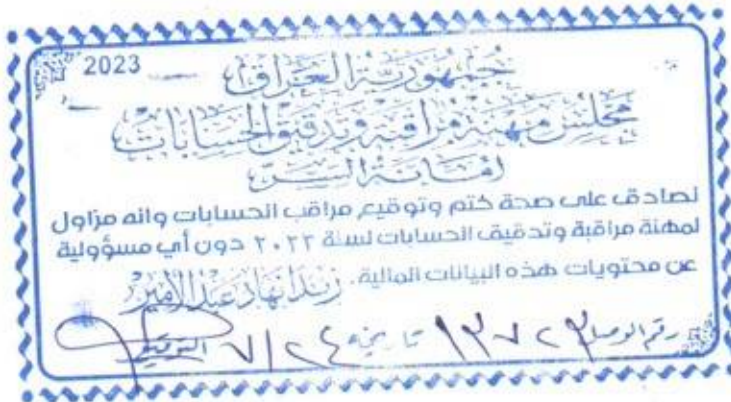 2023
جمهورية العراق
مجلس مهنة مراقبة وتدقيق الحسابات
امانة السر
نصادق على صحة ختم وتوقيع مراقب الحسابات وانه مزاول
لمهنة مراقبة وتدقيق الحسابات لسنة ٢٠٢٣ دون أي مسؤولية
عن محتويات هذه البيانات المالية. زيدا نهاد عبد الأمير
رقم الوصل ١٣٧٢٣ تاريخه ٧/٢٤ التوقيع